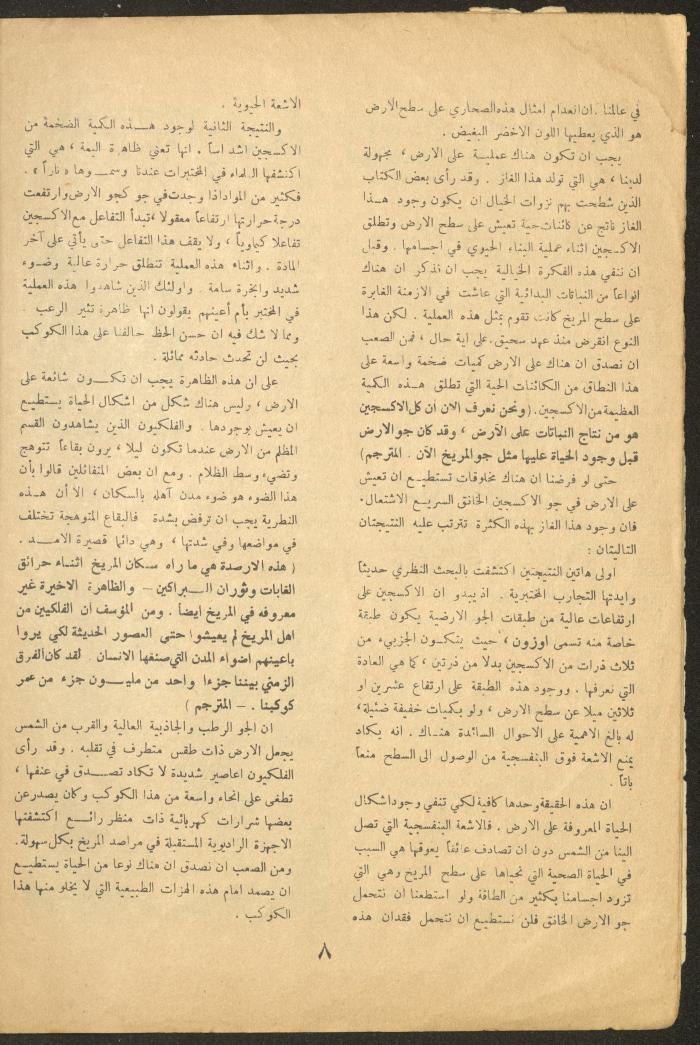 في عالمنا . ان انعدام امثال هذه الصحاري على سطح الارض
هو الذي يعطيها اللون الاخضر البغيض .
يجب ان تكون هناك عملية على الارض ، مجهولة
لدينا ، هي التي تولد هذا الغاز . وقد رأى بعض الكتاب
الذين شطحت بهم نزوات الخيال ان يكون وجود هذا
الغاز ناتج عن كائنات حية تعيش على سطح الارض وتطلق
الاكسجين اثناء عملية البناء الحيوي في اجسامها . وقبل
ان ننفي هذه الفكرة الخيالية يجب ان نذكر ان هناك
انواعاً من النباتات البدائية التي عاشت في الازمنة الغابرة
على سطح المريخ كانت تقوم بمثل هذه العملية . لكن هذا
النوع انقرض منذ عهد سحيق. على اية حال ، فمن الصعب
ان نصدق ان هناك على الارض كميات ضخمة واسعة على
هذا النطاق من الكائنات الحية التي تطلق هذه الكمية
العظيمة من الاكسجين . (ونحن نعرف الان ان كل الاكسجين
هو من نتاج النباتات على الأرض ، وقد كان جو الارض
قبل وجود الحياة عليها مثل جو المريخ الآن . المترجم)
حتى لو فرضنا ان هناك مخلوقات تستطيع ان تعيش
على الارض في جو الاكسجين الخانق السريع الاشتعال .
فان وجود هذا الغاز بهذه الكثرة تترتب عليه النتيجتان
التاليتان :
اولى هاتين النتيجتين اكتشفت بالبحث النظري حديثاً
وايدتها التجارب المختبرية . اذ يبدو ان الاكسجين على
ارتفاعات عالية من طبقات الجو الارضية يكون طبقة
خاصة منه تسمى اوزون ، حيث يتكون الجزيء من
ثلاث ذرات من الاكسجين بدلا من ذرتين ، كما هي العادة
التي نعرفها . ووجود هذه الطبقة على ارتفاع عشرين او
ثلاثين ميلا عن سطح الارض ، ولو بكميات خفيفة ضئيلة ،
له بالغ الاهمية على الاحوال السائدة هناك . انه يكاد
يمنع الاشعة فوق البنفسجية من الوصول الى السطح منعاً
باتاً .
ان هذه الحقيقة وحدها كافية لكي تنفي وجود اشكال
الحياة المعروفة على الارض . فالاشعة البنفسجية التي تصل
الينا من الشمس دون ان تصادف عائقاً يعوقها هي السبب
في الحياة الصحية التي نحياها على سطح المريخ وهي التي
تزود اجسامنا بكثير من الطاقة ولو استطعنا ان نتحمل
جو الارض الخانق فلن نستطيع ان نتحمل فقدان هذه
الاشعة الحيوية .
والنتيجة الثانية لوجود هذه الكمية الضخمة من
الاكسجين اشد اساً . انها تعني ظاهرة اليمة ، هي التي
اكتشفها العلماء في المختبرات عندنا وسموها « ناراً » .
فكثير من المواد اذا وجدت في جو كجو الارض وارتفعت
درجة حرارتها ارتفاعاً معقولا ، تبدأ التفاعل مع الاكسجين
تفاعلا كياوياً ، ولا يقف هذا التفاعل حتى يأتي على آخر
المادة . واثناء هذه العملية تنطلق حرارة عالية وضوء
شديد وابخرة سامة . واولئك الذين شاهدوا هذه العملية
في المختبر بأم أعينهم يقولون انها ظاهرة تثير الرعب .
ومما لا شك فيه ان حسن الحظ حالفنا على هذا الكوكب
بحيث لن تحدث حادثه مماثلة .
على ان هذه الظاهرة يجب ان تكون شائعة على
الارض ، وليس هناك شكل من اشكال الحياة يستطيع
ان يعيش بوجودها . والفلكيون الذين يشاهدون القسم
المظلم من الارض عندما تكون ليلا ، يرون بقاعاً تتوهج
وتضيء وسط الظلام . ومع ان بعض المتفائلين قالوا بأن
هذا الضوء هو ضوء مدن آهله بالسكان ، الا أن هذه
النظرية يجب ان ترفض بشدة فالبقاع المتوهجة تختلف
في مواضعها وفي شدتها ، وهي دائما قصيرة الامد .
( هذه الارصدة هي ما راه سكان المريخ اثناء حرائق
الغابات وثوران البراكين – والظاهرة الاخيرة غير
معروفه في المريخ ايضاً . ومن المؤسف ان الفلكيين من
اهل المريخ لم يعيشوا حتى العصور الحديثة لكي يروا
باعينهم اضواء المدن التي صنعها الانسان . لقد كان الفرق
الزمني بيننا جزءا واحد من مليون جزء من عمر
كوكبنا . – المترجم )
ان الجو الرطب والجاذبية العالية والقرب من الشمس
يجعل الارض ذات طقس متطرف في تقلبه . وقد رأى
الفلكيون اعاصير شديدة لا تكاد تصدق في عنفها ،
تطغى على انحاء واسعة من هذا الكوكب وكان يصدر عن
بعضها شرارات كهربائية ذات منظر رائع اكتشفتها
الاجهزة الراديوية المستقبلة في مراصد المريخ بكل سهولة .
ومن الصعب ان نصدق ان هناك نوعا من الحياة يستطيع
ان يصمد امام هذه الهزات الطبيعية التي لا يخلو منها هذا
الكوكب .
٨